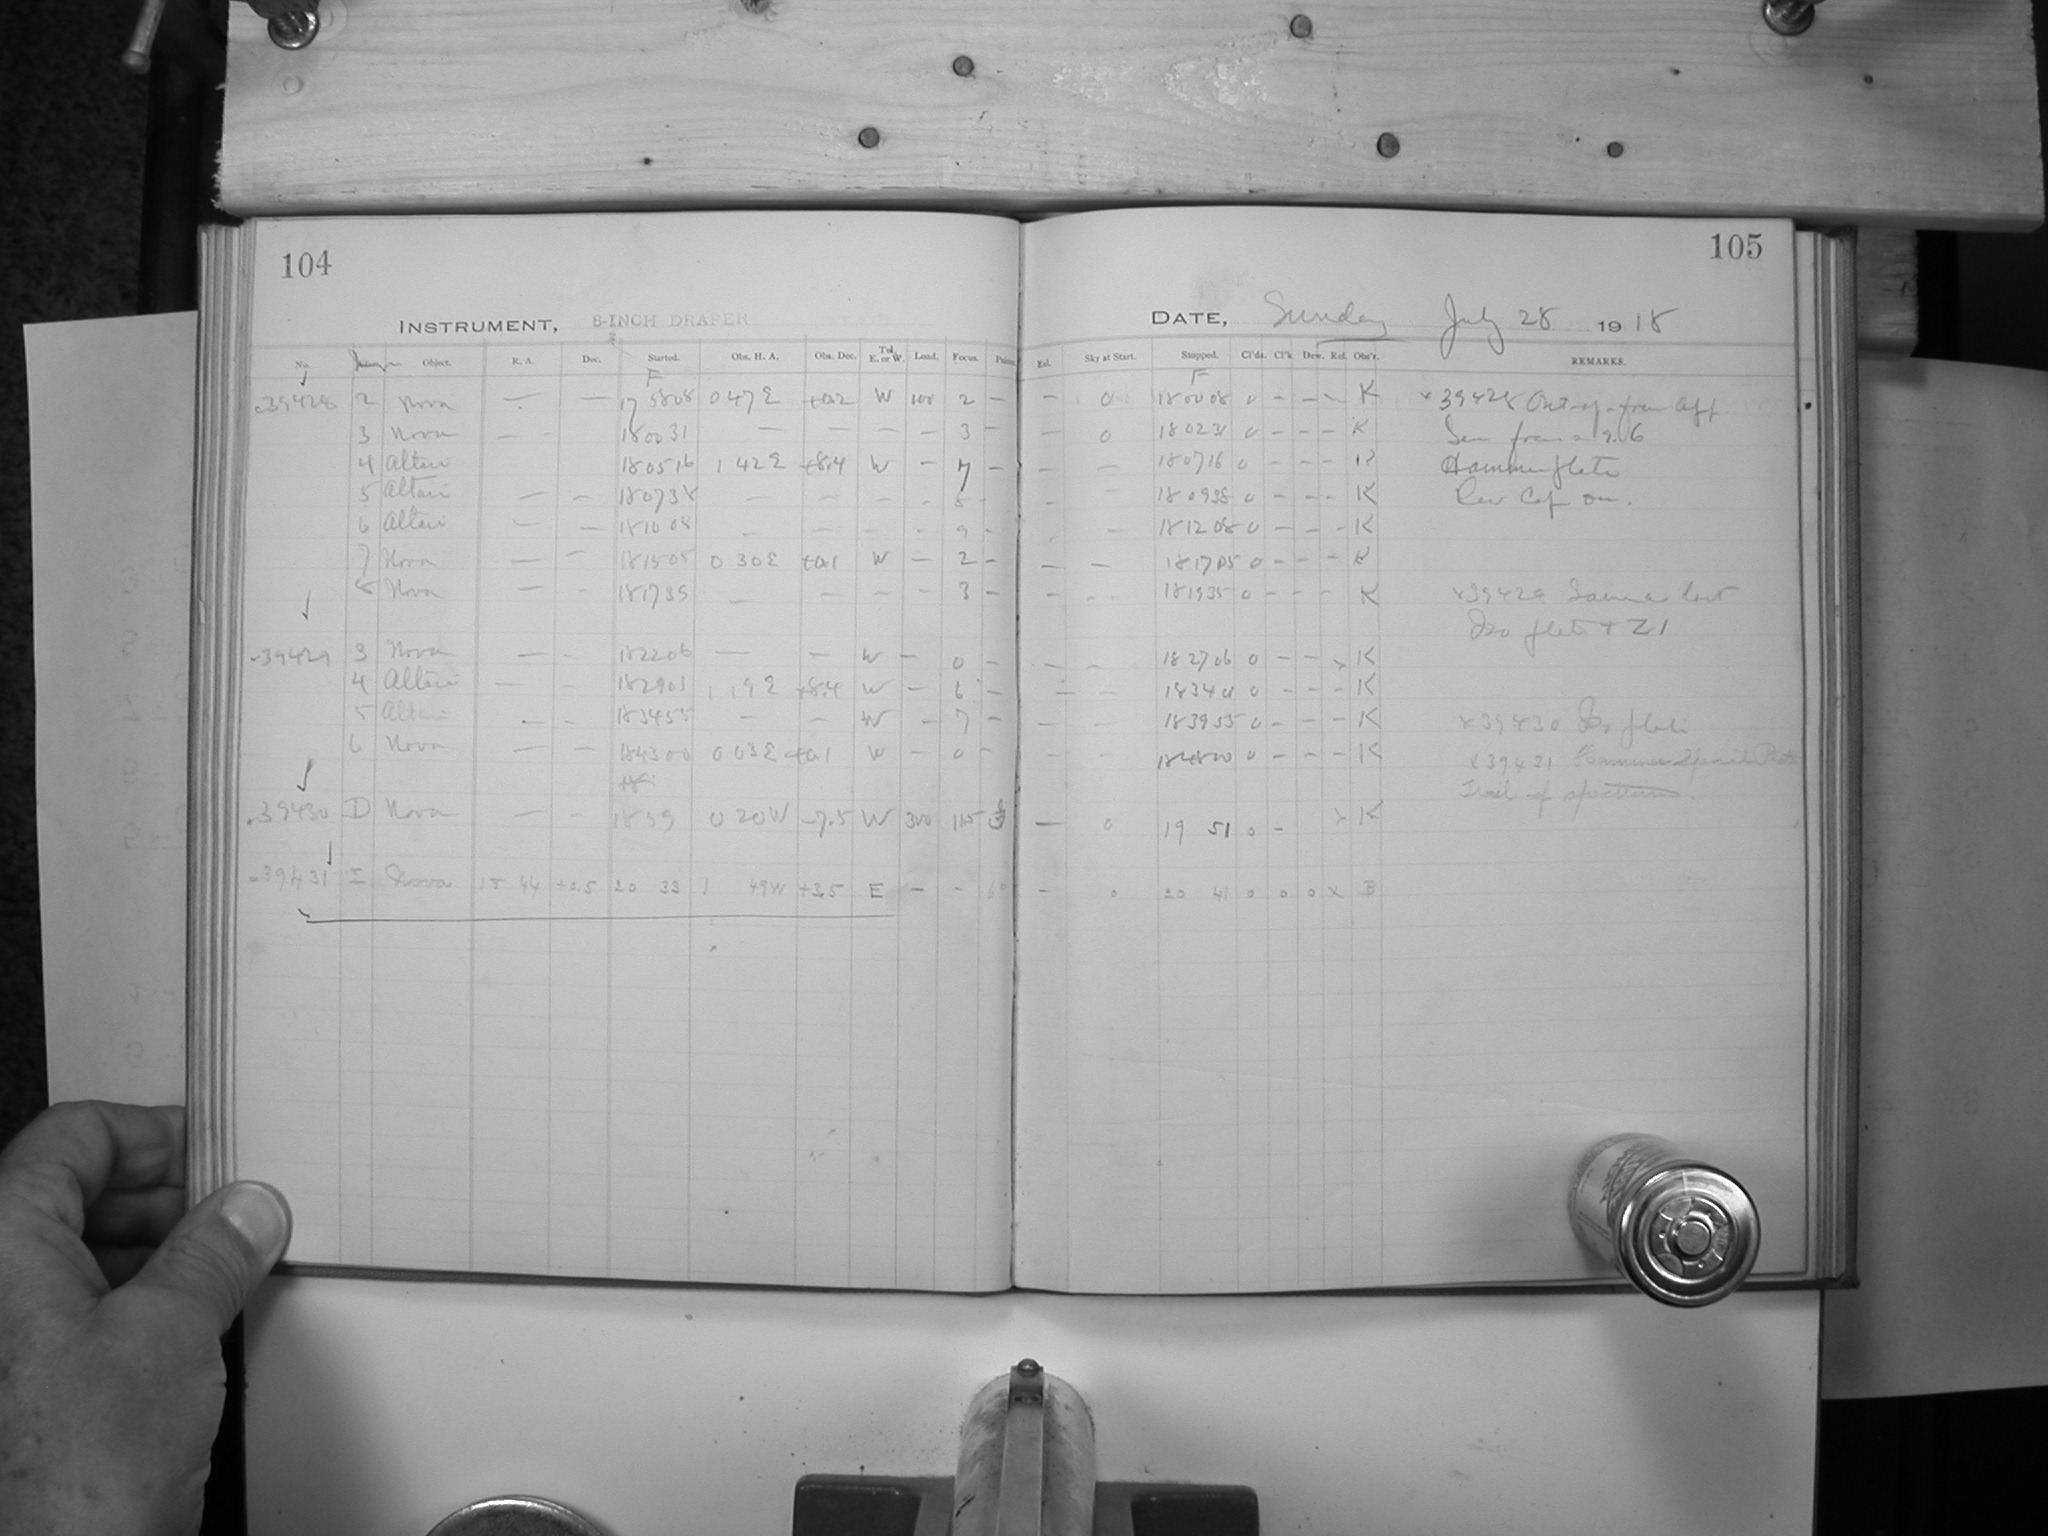 104
105
INSTRUMENT, 8-INCH DRAPER
DATE, Sunday July 28 1918
No. Object. R. A. Dec. Started. Obs. H. A. Obs. Dec. Tel. E. or W. Load. Focus.
Sky at Start. Stopped. Cl'ds. Cl'k Dew. Ref. Obs'r. REMARKS.
F F
39428 2 Nova — — 17 58 08 0 47 E +0.2 W 100 2 — — 0 18 00 08 0 - - - K x 39428
3 Nova — - 18 00 31 — — — — 3 — — 0 18 02 31 0 - - - K
4 Altair 18 05 16 1 42 E +8.4 W — 7 — — — 18 07 16 0 - - - Hammer plate
5 Altair — — 18 07 38 — — — — 8 - — — 18 09 38 0 - - - K Dew Cap on.
6 Altair — — 18 10 08 — — — — 9 - — 18 12 08 0 - - - K
7 Nova — — 18 15 05 0 30 E +0.1 W — 2 — — — 18 17 05 0 - - - K
8 Nova — — 18 17 35 — — — 3 — — - - 18 19 35 0 - - - K x 39429
Iso plate + Z1
39429 3 Nova — - 18 22 06 — — W — 0 — — - 18 27 06 0 - - x K
4 Altair — - 18 29 01 1 19 E +8.4 W — 6 — — — 18 34 01 0 - - - K
5 Altair - - 18 34 55 — — W — 7 — — — 18 39 55 0 - - - K x 39430 Iso plate
6 Nova — - 18 43 00 0 03 E +0.1 W — 0 - - - 18 48 00 0 - - - K x 39431 Hammer Special Plate
Trail of spectrum.
39430 D Nova — - 18 59 0 20 W -7.5 W 300 — 0 19 51 0 - x K
39431 I Nova 18 44 +0.5 20 33 1 49 W +3.5 E — - — 0 20 41 0 0 0 x B